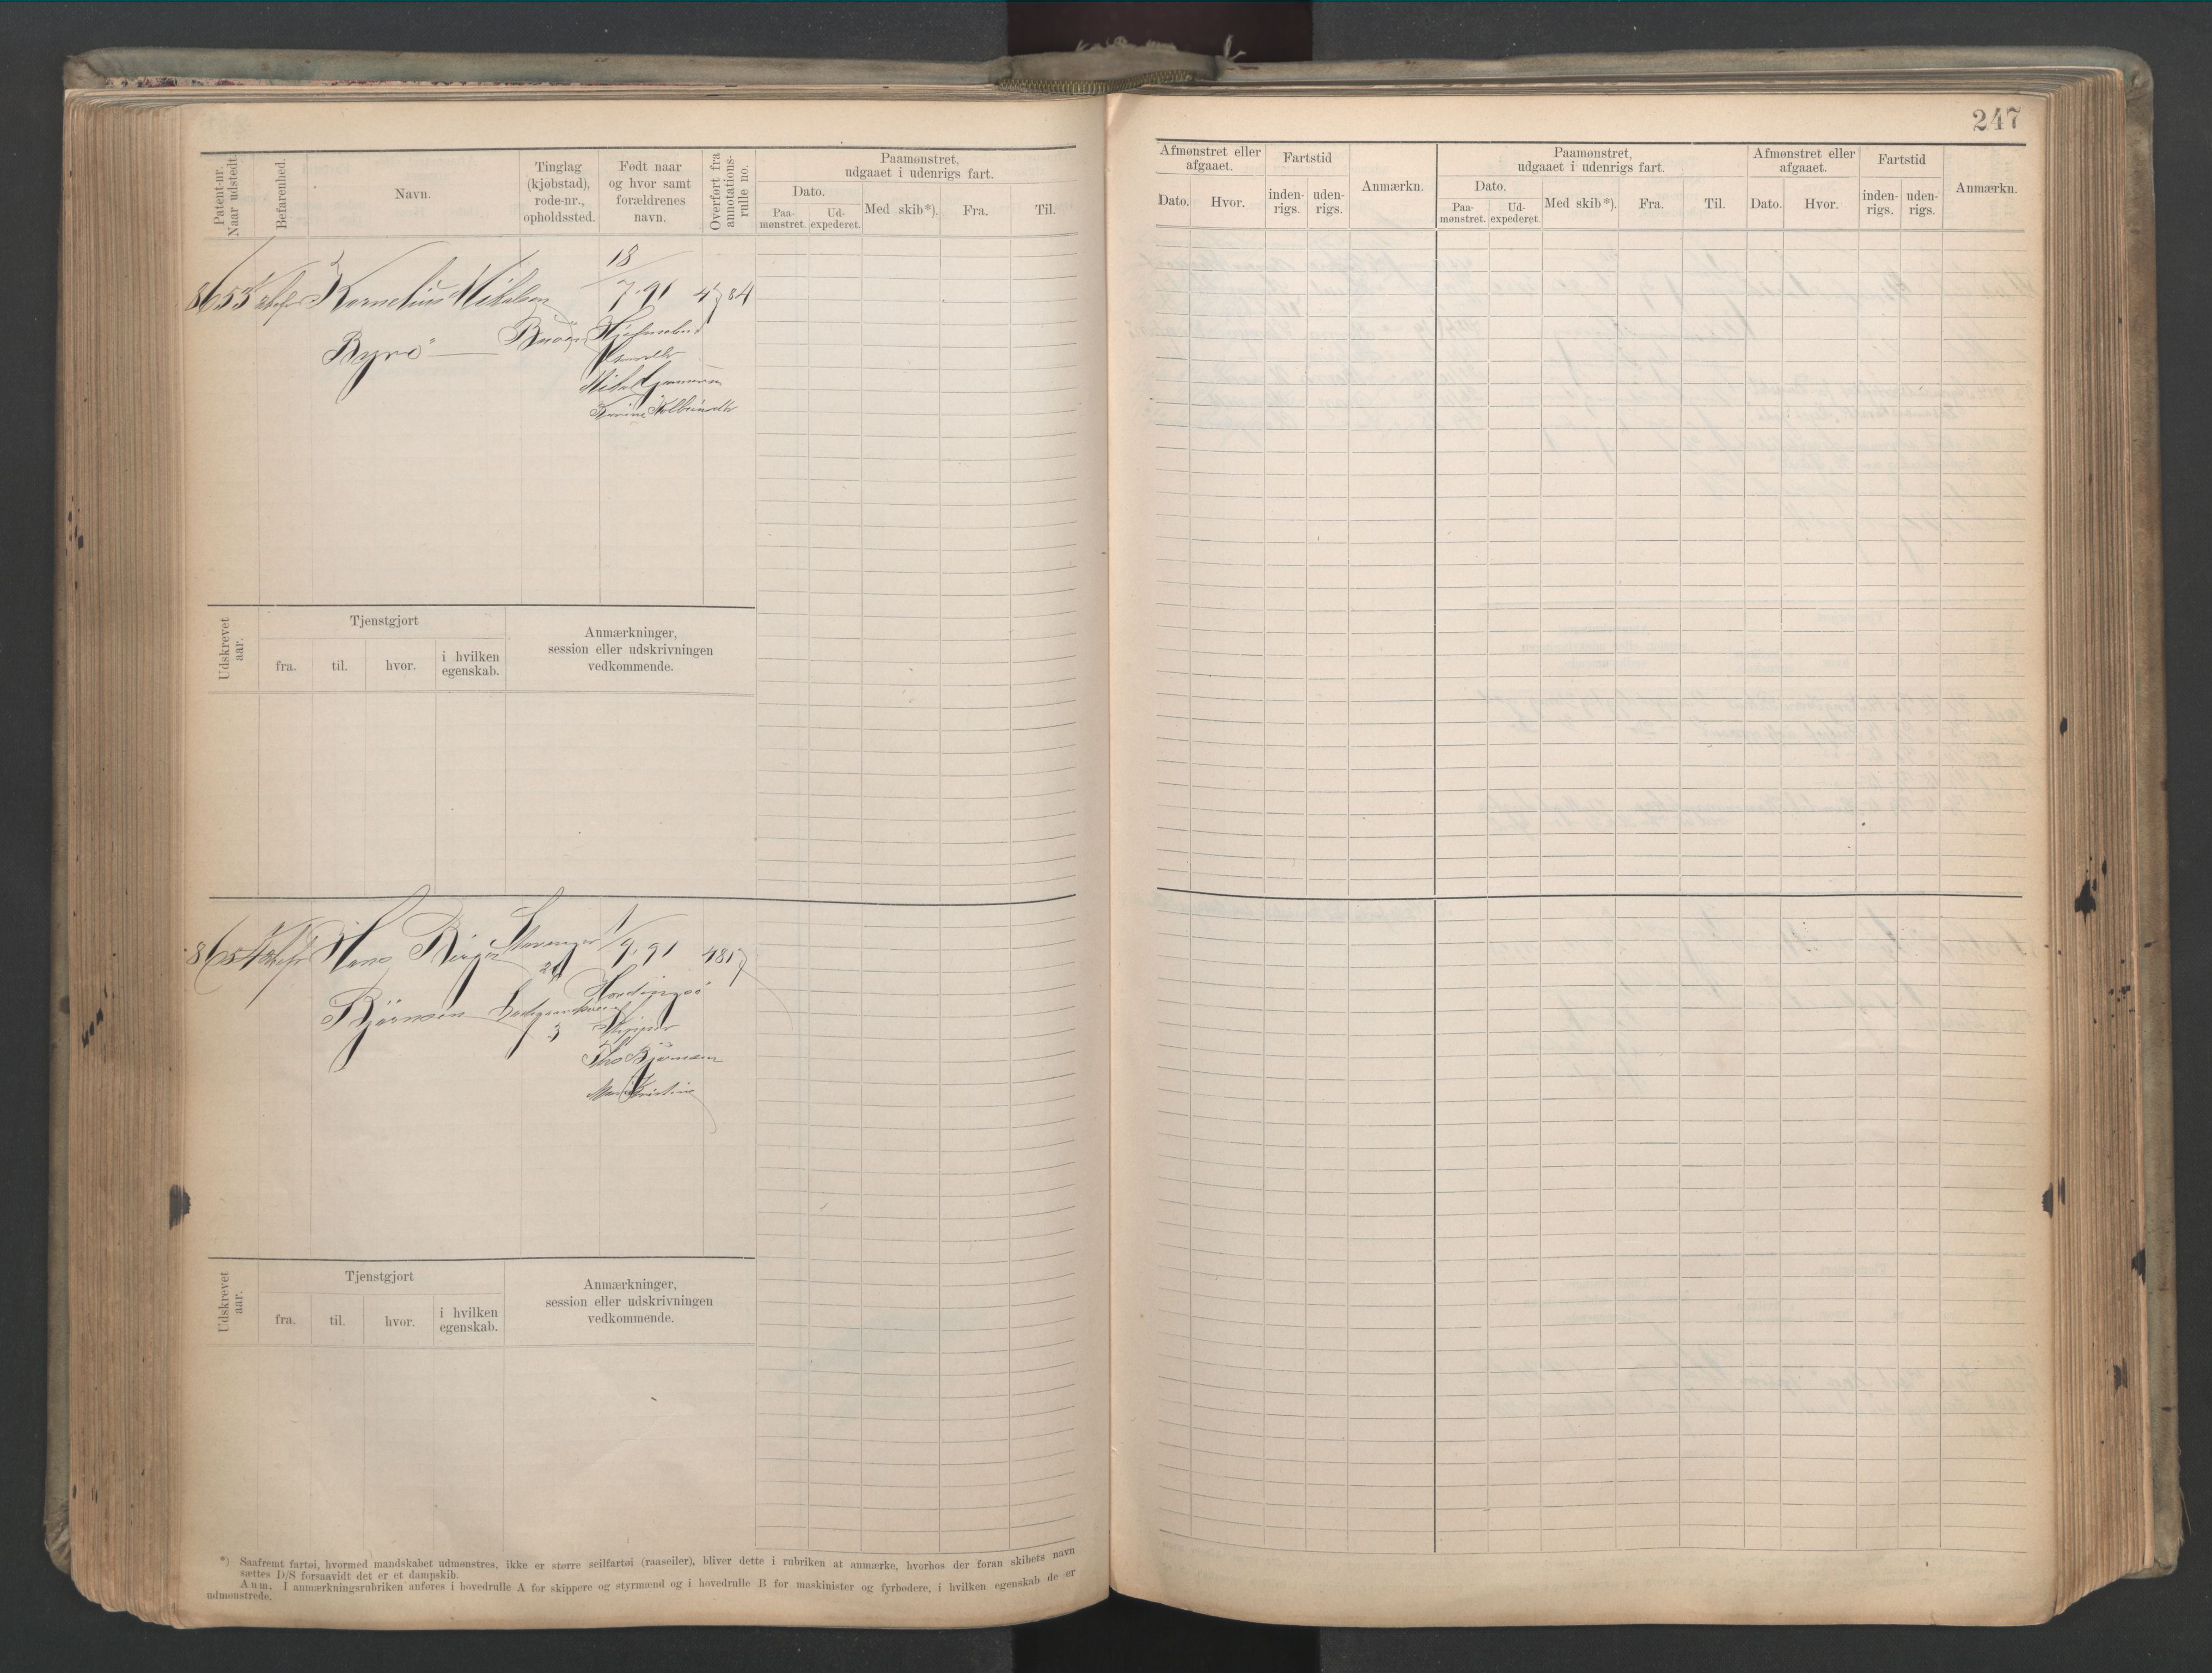 247
Patent-nr. Naar udstedt.
Befarenhed.
Navn.
Tinglag (kjøbstad), rode-nr., opholdssted.
Født naar og hvor samt forældrenes navn.
Overført fra annotations-rulle no.
Paamønstret, udgaaet i udenrigs fart.
Dato.
Paa-mønstret.
Ud-expederet.
Med skib*).
Fra.
Til.
Afmønstret eller afgaaet.
Dato.
Hvor.
Fartstid
inden-rigs.
uden-rigs.
Anmærkn.
Paamønstret, udgaaet i udenrigs fart.
Dato.
Paa-mønstret.
Ud-expederet.
Med skib*).
Fra.
Til.
Afmønstret eller afgaaet.
Dato.
Hvor.
Fartstid
inden-rigs.
uden-rigs.
Anmærkn.
18
8653 Kornelius Mikalsen 7.91 4784
Byrö
Mikal
Udskrevet aar.
Tjenstgjort
fra.
til.
hvor.
i hvilken egenskab.
Anmærkninger, session eller udskrivningen vedkommende.
8654 Hans Birger Stavanger 1/9.91 4817
Björnsen
3
Skipper
Björnsen
Udskrevet aar.
Tjenstgjort
fra.
til.
hvor.
i hvilken egenskab.
Anmærkninger, session eller udskrivningen vedkommende.
*) Saafremt fartøi, hvormed mandskabet udmønstres, ikke er større seilfartøi (raaseiler), bliver dette i rubriken at anmærke, hvorhos der foran skibets navn
sættes D/S forsaavidt det er et dampskib.
Anm. I anmærkningsrubriken anføres i hovedrulle A for skippere og styrmænd og i hovedrulle B for maskinister og fyrbødere, i hvilken egenskab de er
udmønstrede.